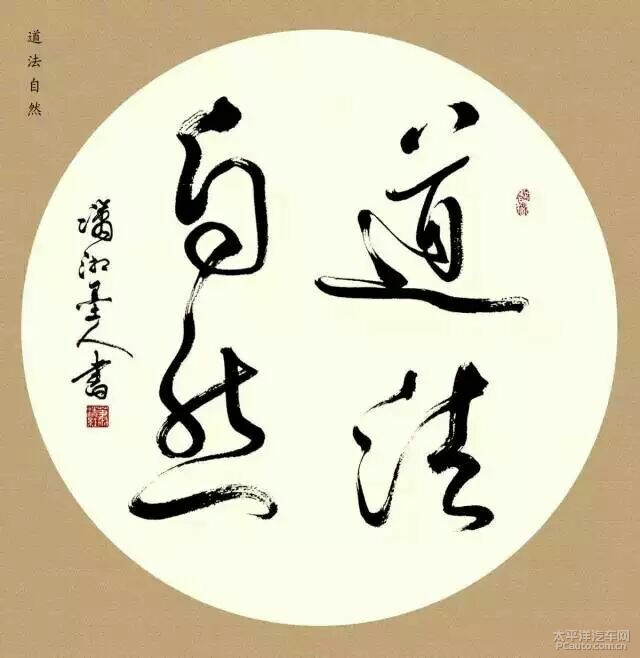 道法
自然
潇湘墨人书
道法自然
太平洋汽车网
PCauto.com.cn